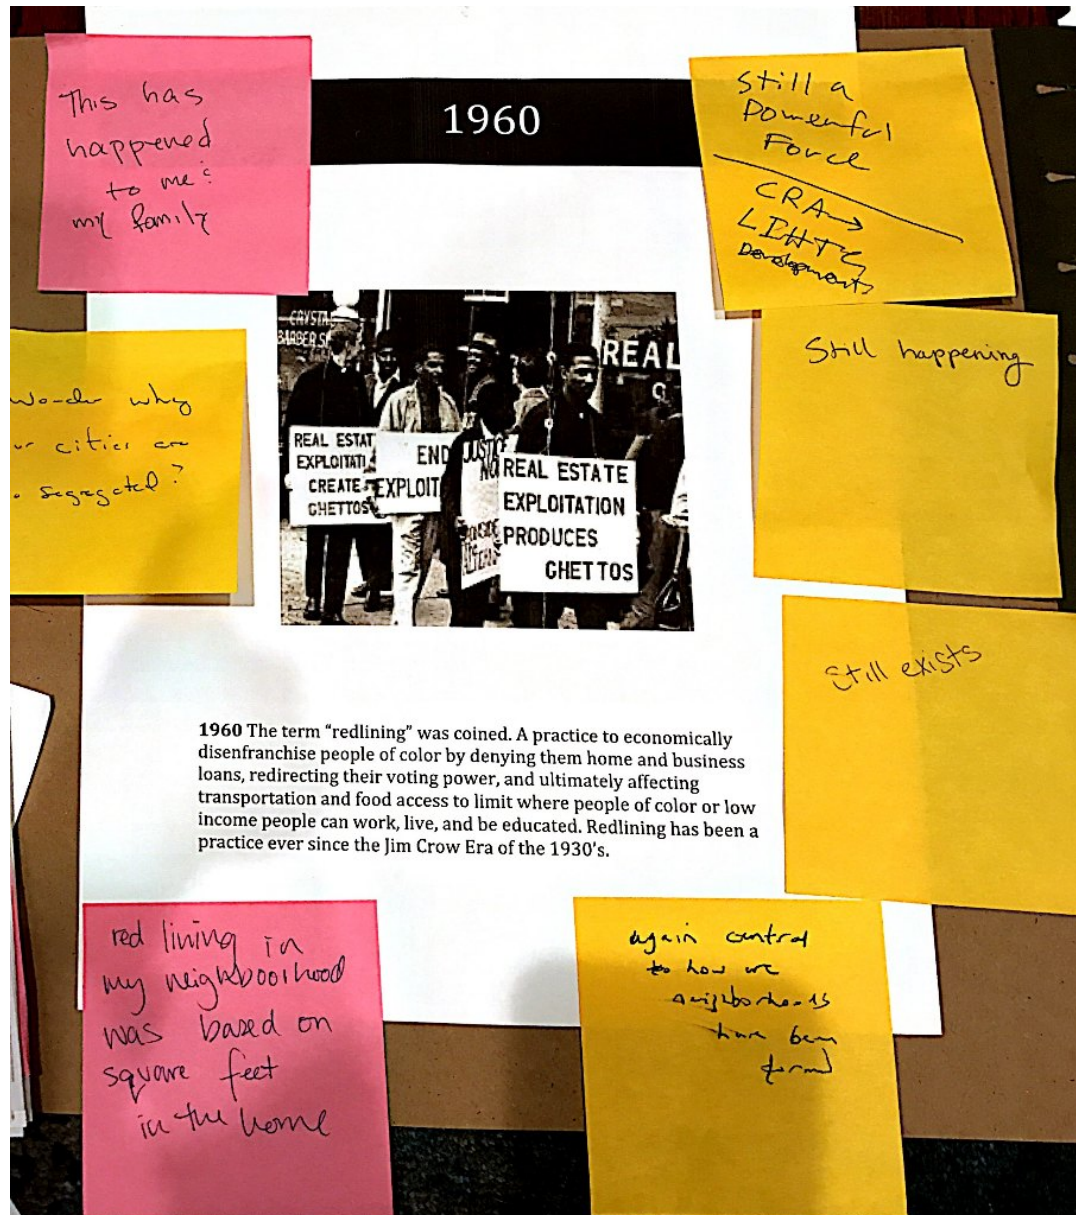 This has
happened
to me &
my family
1960
Still a
Powerful
Force
CRA→
LIHTC
Developments
CRYSTAL
BARBER S
REAL
REAL ESTAT
EXPLOITATI
CREATE
GHETTOS
END
EXPLOIT
JUSTICE
NO
REAL ESTATE
EXPLOITATION
PRODUCES
GHETTOS
Wonder why
ur cities are
o segregated?
Still happening
Still exists
1960 The term “redlining” was coined. A practice to economically
disenfranchise people of color by denying them home and business
loans, redirecting their voting power, and ultimately affecting
transportation and food access to limit where people of color or low
income people can work, live, and be educated. Redlining has been a
practice ever since the Jim Crow Era of the 1930's.
red lining in
my neighboorhood
was based on
square feet
in the home
again central
to how
neighborhoods
have been
formed